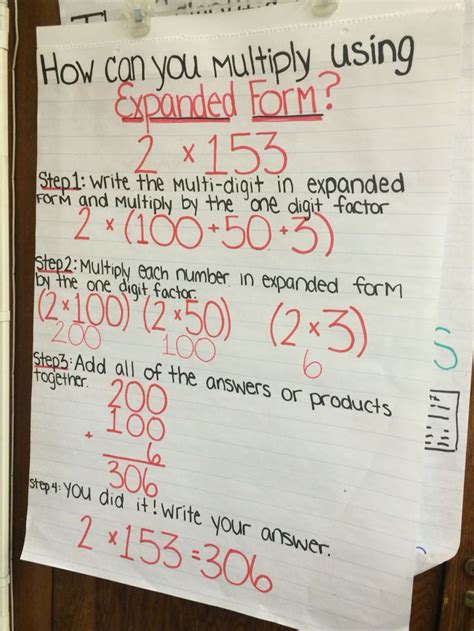 How can you Multiply using
Expanded Form?
2 × 153
Step1: Write the Multi-digit in expanded
form and Multiply by the one digit factor
2 × (100+50+3)
Step2: Multiply each number in expanded form
by the one digit factor.
(2×100) (2×50) (2×3)
200 100 6
Step3: Add all of the answers or products
together.
200
100
+ 6
306
Step4: You did it! Write your answer.
2 × 153 = 306